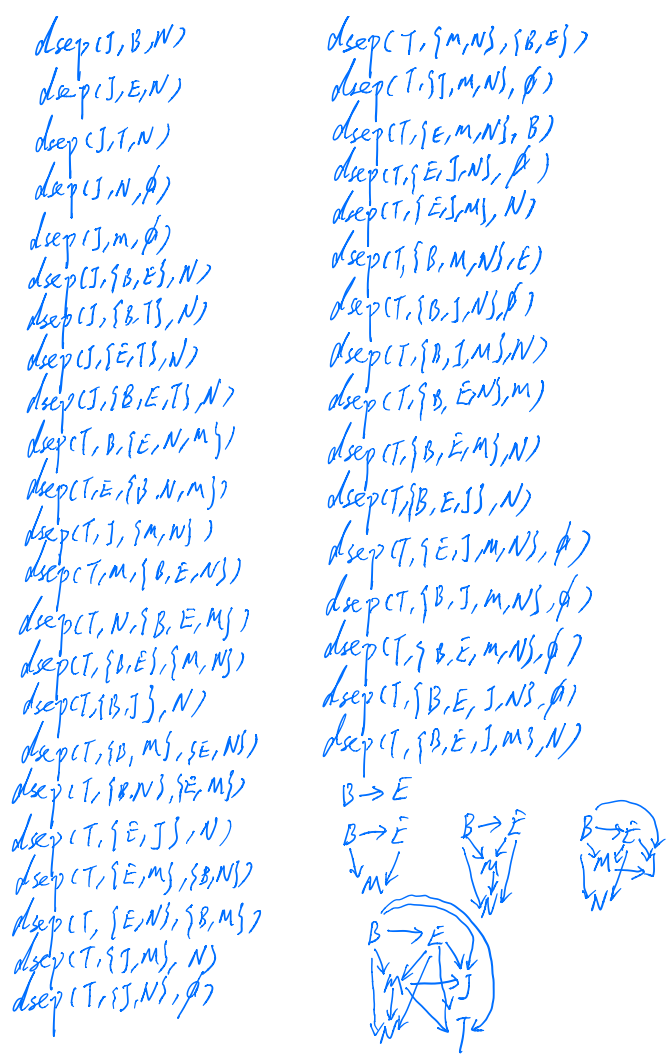 dsep(J, B, N)
dsep(J, E, N)
dsep(J, T, N)
dsep(J, N, ∅)
dsep(J, M, ∅)
dsep(J, {B, E}, N)
dsep(J, {B, T}, N)
dsep(J, {E, T}, N)
dsep(J, {B, E, T}, N)
dsep(T, B, {E, N, M})
dsep(T, E, {B, N, M})
dsep(T, J, {M, N})
dsep(T, M, {B, E, N})
dsep(T, N, {B, E, M})
dsep(T, {B, E}, {M, N})
dsep(T, {B, J}, N)
dsep(T, {B, M}, {E, N})
dsep(T, {B, N}, {E, M})
dsep(T, {E, J}, N)
dsep(T, {E, M}, {B, N})
dsep(T, {E, N}, {B, M})
dsep(T, {J, M}, N)
dsep(T, {J, N}, ∅)
dsep(T, {M, N}, {B, E})
dsep(T, {J, M, N}, ∅)
dsep(T, {E, M, N}, B)
dsep(T, {E, J, N}, ∅)
dsep(T, {E, J, M}, N)
dsep(T, {B, M, N}, E)
dsep(T, {B, J, N}, ∅)
dsep(T, {B, J, M}, N)
dsep(T, {B, E, N}, M)
dsep(T, {B, E, M}, N)
dsep(T, {B, E, J}, N)
dsep(T, {E, J, M, N}, ∅)
dsep(T, {B, J, M, N}, ∅)
dsep(T, {B, E, M, N}, ∅)
dsep(T, {B, E, J, N}, ∅)
dsep(T, {B, E, J, M}, N)
B → E
B → E
M
B → E
M
N
B → E
M J
N
B → E
M J
N T